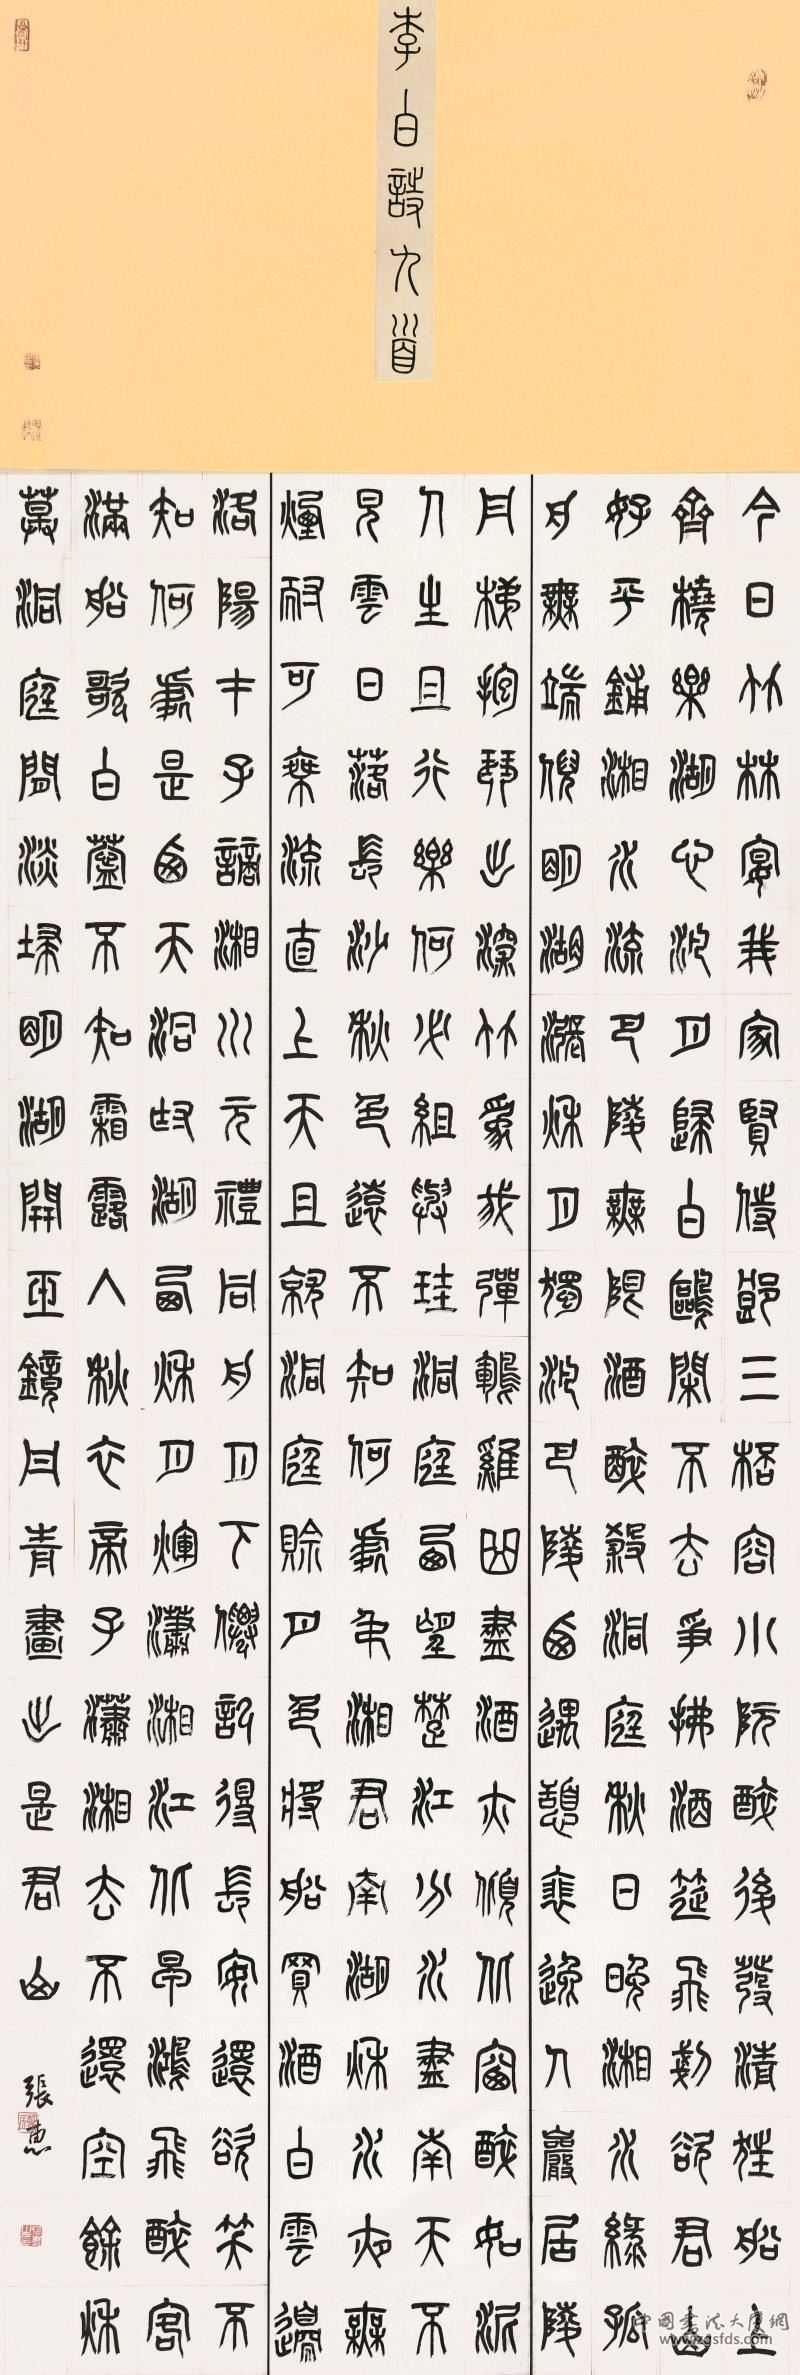 李白詩九首
今日竹林宴我家賢侍郎三桮容小阮醉後發清狂船上
齊橈樂湖心泛月歸白鷗閑不去爭拂酒筵飛剗卻君山
好平鋪湘水流巴陵無限酒醉殺洞庭秋日晚湘水綠孤
舟無端倪明湖漲秋月獨泛巴陵西遇憩裴逸人巖居陵
丹梯抱琴出深竹為我彈鵾雞曲盡酒亦傾北窗醉如泥
人生且行樂何必組與珪洞庭西望楚江分水盡南天不
見雲日落長沙秋色遠不知何處弔湘君南湖秋水夜無
煙耐可乘流直上天且就洞庭賒月色將船買酒白雲邊
洛陽才子謫湘川元禮同舟月下僊記得長安還欲笑不
知何處是西天湖西秋月輝瀟湘江北早鴻飛醉客
滿船歌白苧不知霜露入秋衣帝子瀟湘去不還空餘秋
草洞庭間淡掃明湖開玉鏡丹青畫出是君山
張惠
www.zgsfds.com